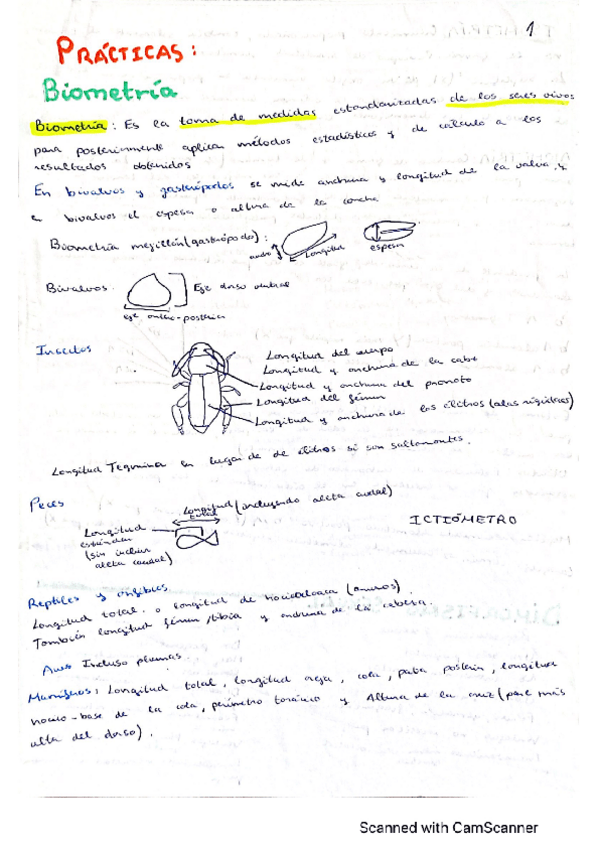 1
PRÁCTICAS:
Biometría
Biometría: Es la toma de medidas estandarizadas de los seres vivos
para posteriormente aplicar métodos estadísticos y de cálculo a los
resultados obtenidos
En bivalvos y gasterópodos se mide anchura y longitud de la valva, y
e bivalvos el espesor o altura de la concha
Biometría mejillón (gastrópodo):
ancho
Longitud
espesor
Bivalvos.
Eje dorso ventral
eje antero-posterior
Insectos
Longitud del cuerpo
Longitud y anchura de la cabe
Longitud y anchura del pronoto
Longitud del fémur
Longitud y anchura de los élitros (alas rígidas)
Longitud Tegmina en lugar de de élitros si son saltamontes.
Peces
Longitud total (incluyendo aleta caudal)
Longitud estándar
(sin incluir
aleta caudal)
ICTIÓMETRO
Reptiles y anfibios
Longitud total o longitud de hocico cloaca (anuros).
También longitud fémur/tibia y anchura de la cabeza.
Aves Incluso plumas.
Mamíferos: Longitud total, longitud oreja, cola, pata posterior, longitud
hocico-base de la cola, perímetro torácico y Altura de la cruz (parte más
alta del dorso).
Scanned with CamScanner